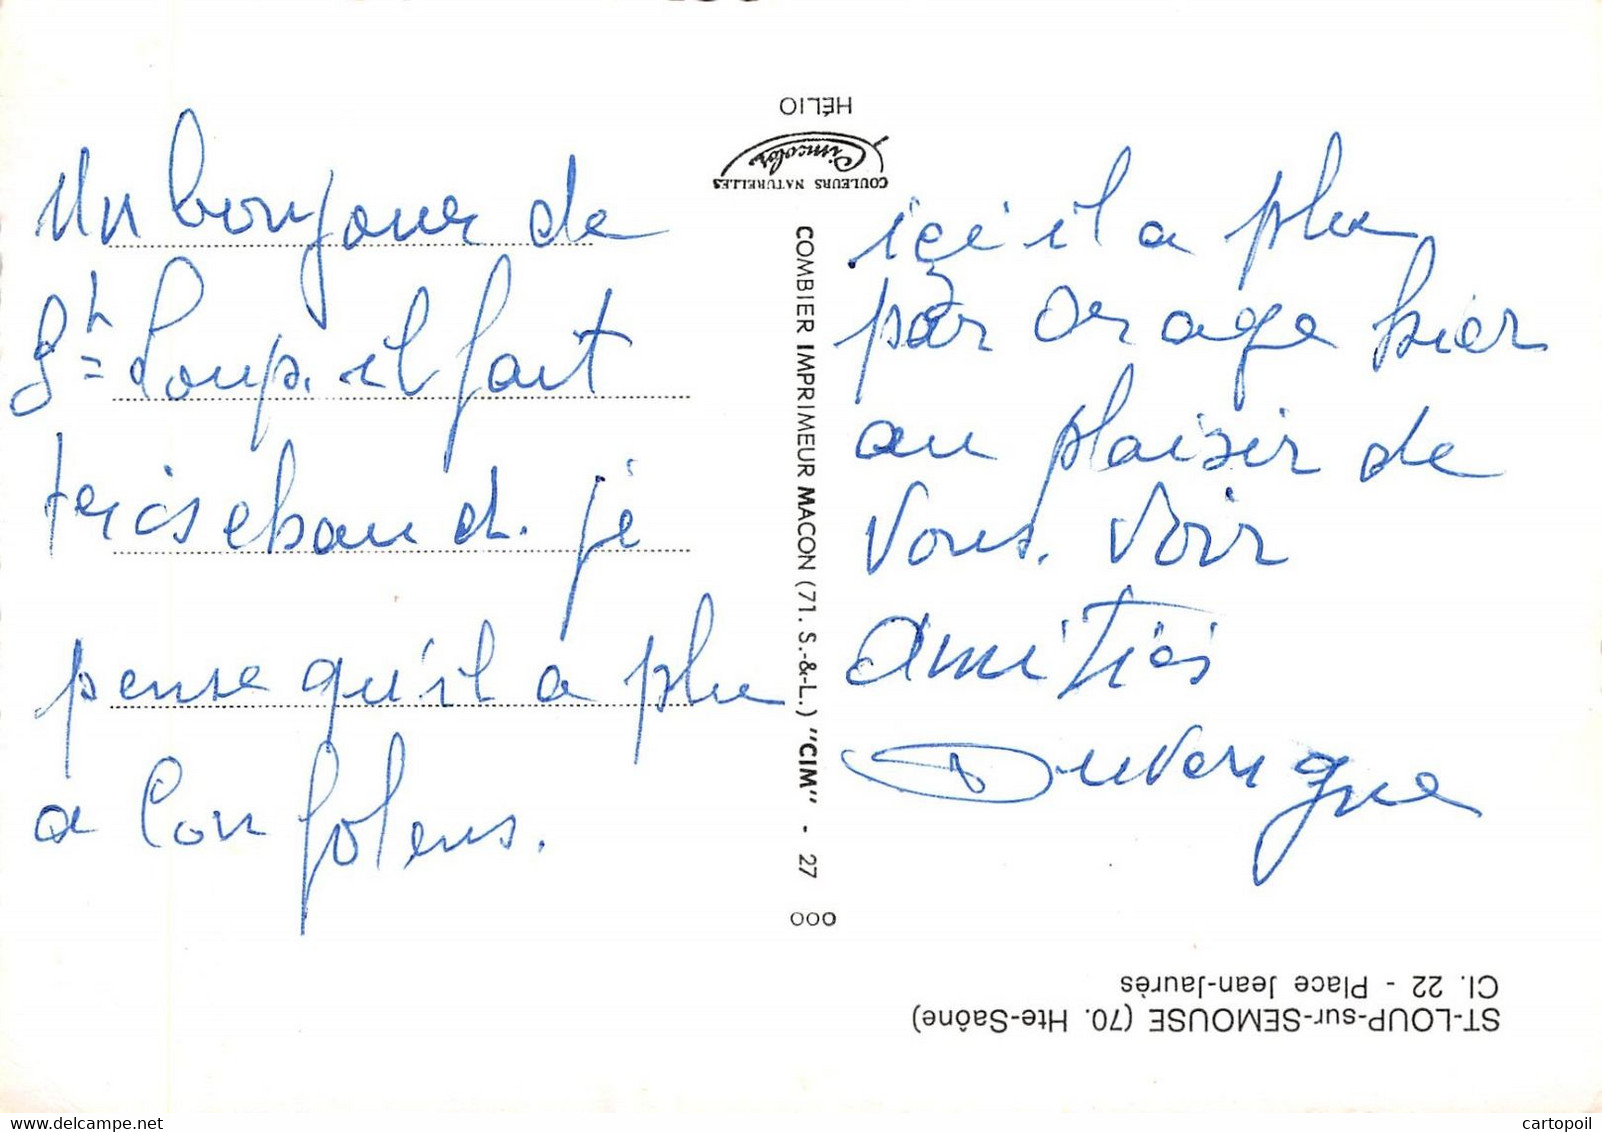 Un bonjour de
St Loup. il fait
très chaud. je
pense qu'il a plu
a Confolens.
HÉLIO
Cimcolor
COULEURS NATURELLES
COMBIER IMPRIMEUR MACON (71. S.-&-L.) "CIM" - 27
000
içi il a plu
par orage hier
au plaisir de
Vous. Voir
amitiés
Duvergne
ST-LOUP-sur-SEMOUSE (70. Hte-Saône)
Cl. 22 - Place Jean-Jaurès
cartopoil